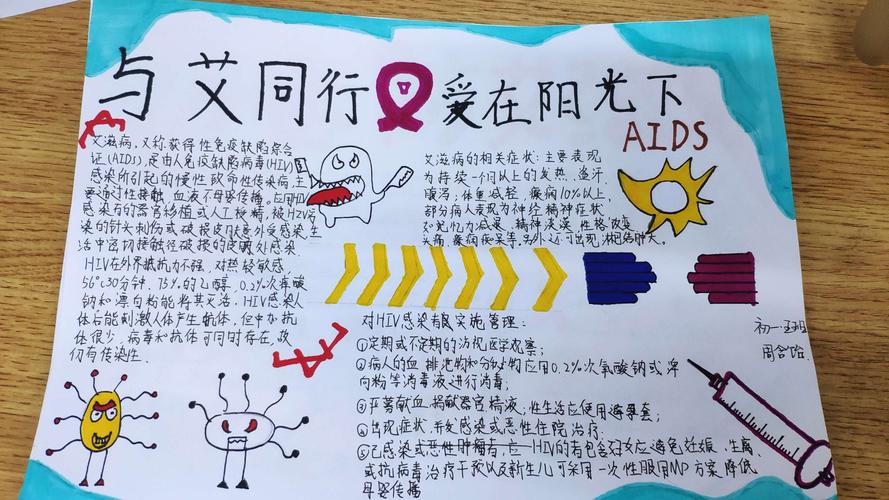 与艾同行 爱在阳光下
AIDS
艾滋病,又称获得性免疫缺陷综合
证(AIDS),是由人免疫缺陷病毒(HIV)
感染所引起的慢性致命性传染病,主
要通过性接触、血液不母婴传播。应用HIV
感染者的器官移植或人工授精,被HIV污
染的针头刺伤或破损皮肤意外受感染,生
活中密切接触经破损的皮肤处感染.
HIV在外界抵抗力不强,对热轻敏感,
56℃30分钟、75%的乙醇、0.2%次氯酸
钠和漂白粉能将其灭活。HIV感染人
体后能刺激人体产生抗体,但中和抗
体很少,病毒和抗体可同时存在,故
仍有传染性.
艾滋病的相关症状:主要表现
为持续一个月以上的发热、盗汗、
腹泻;体重减轻,癫痫10%以上,
部分病人表现为神经精神症状
如记忆力减退、精神淡漠、性格改变、
头痛、癫痫痴呆等,另外还可出现淋巴结肿大。
对HIV感染者及实施管理:
①定期或不定期的访视医学观察;
②病人的血、排泄物和分泌物应用0.2%次氧酸钠或漂
白粉等消毒液进行消毒;
③严菶献血、捐献器官、精液;性生活应使用避孕套;
④出现症状,并发感染或恶性住院治疗.
⑤已感染或恶性肿瘤者,应HIV的者包含妇女应避免妊娠、生育,
或抗病毒治疗干预以及新生儿可采用一次性服用MP方案,降低
母婴传播
初一五班
周含